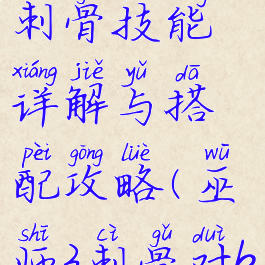 刺骨技能
xiáng jiě yǔ dā
详解与搭
pèi gōng lüè wū
配攻略(巫
shī cì gǔ duì
师3刺骨对b